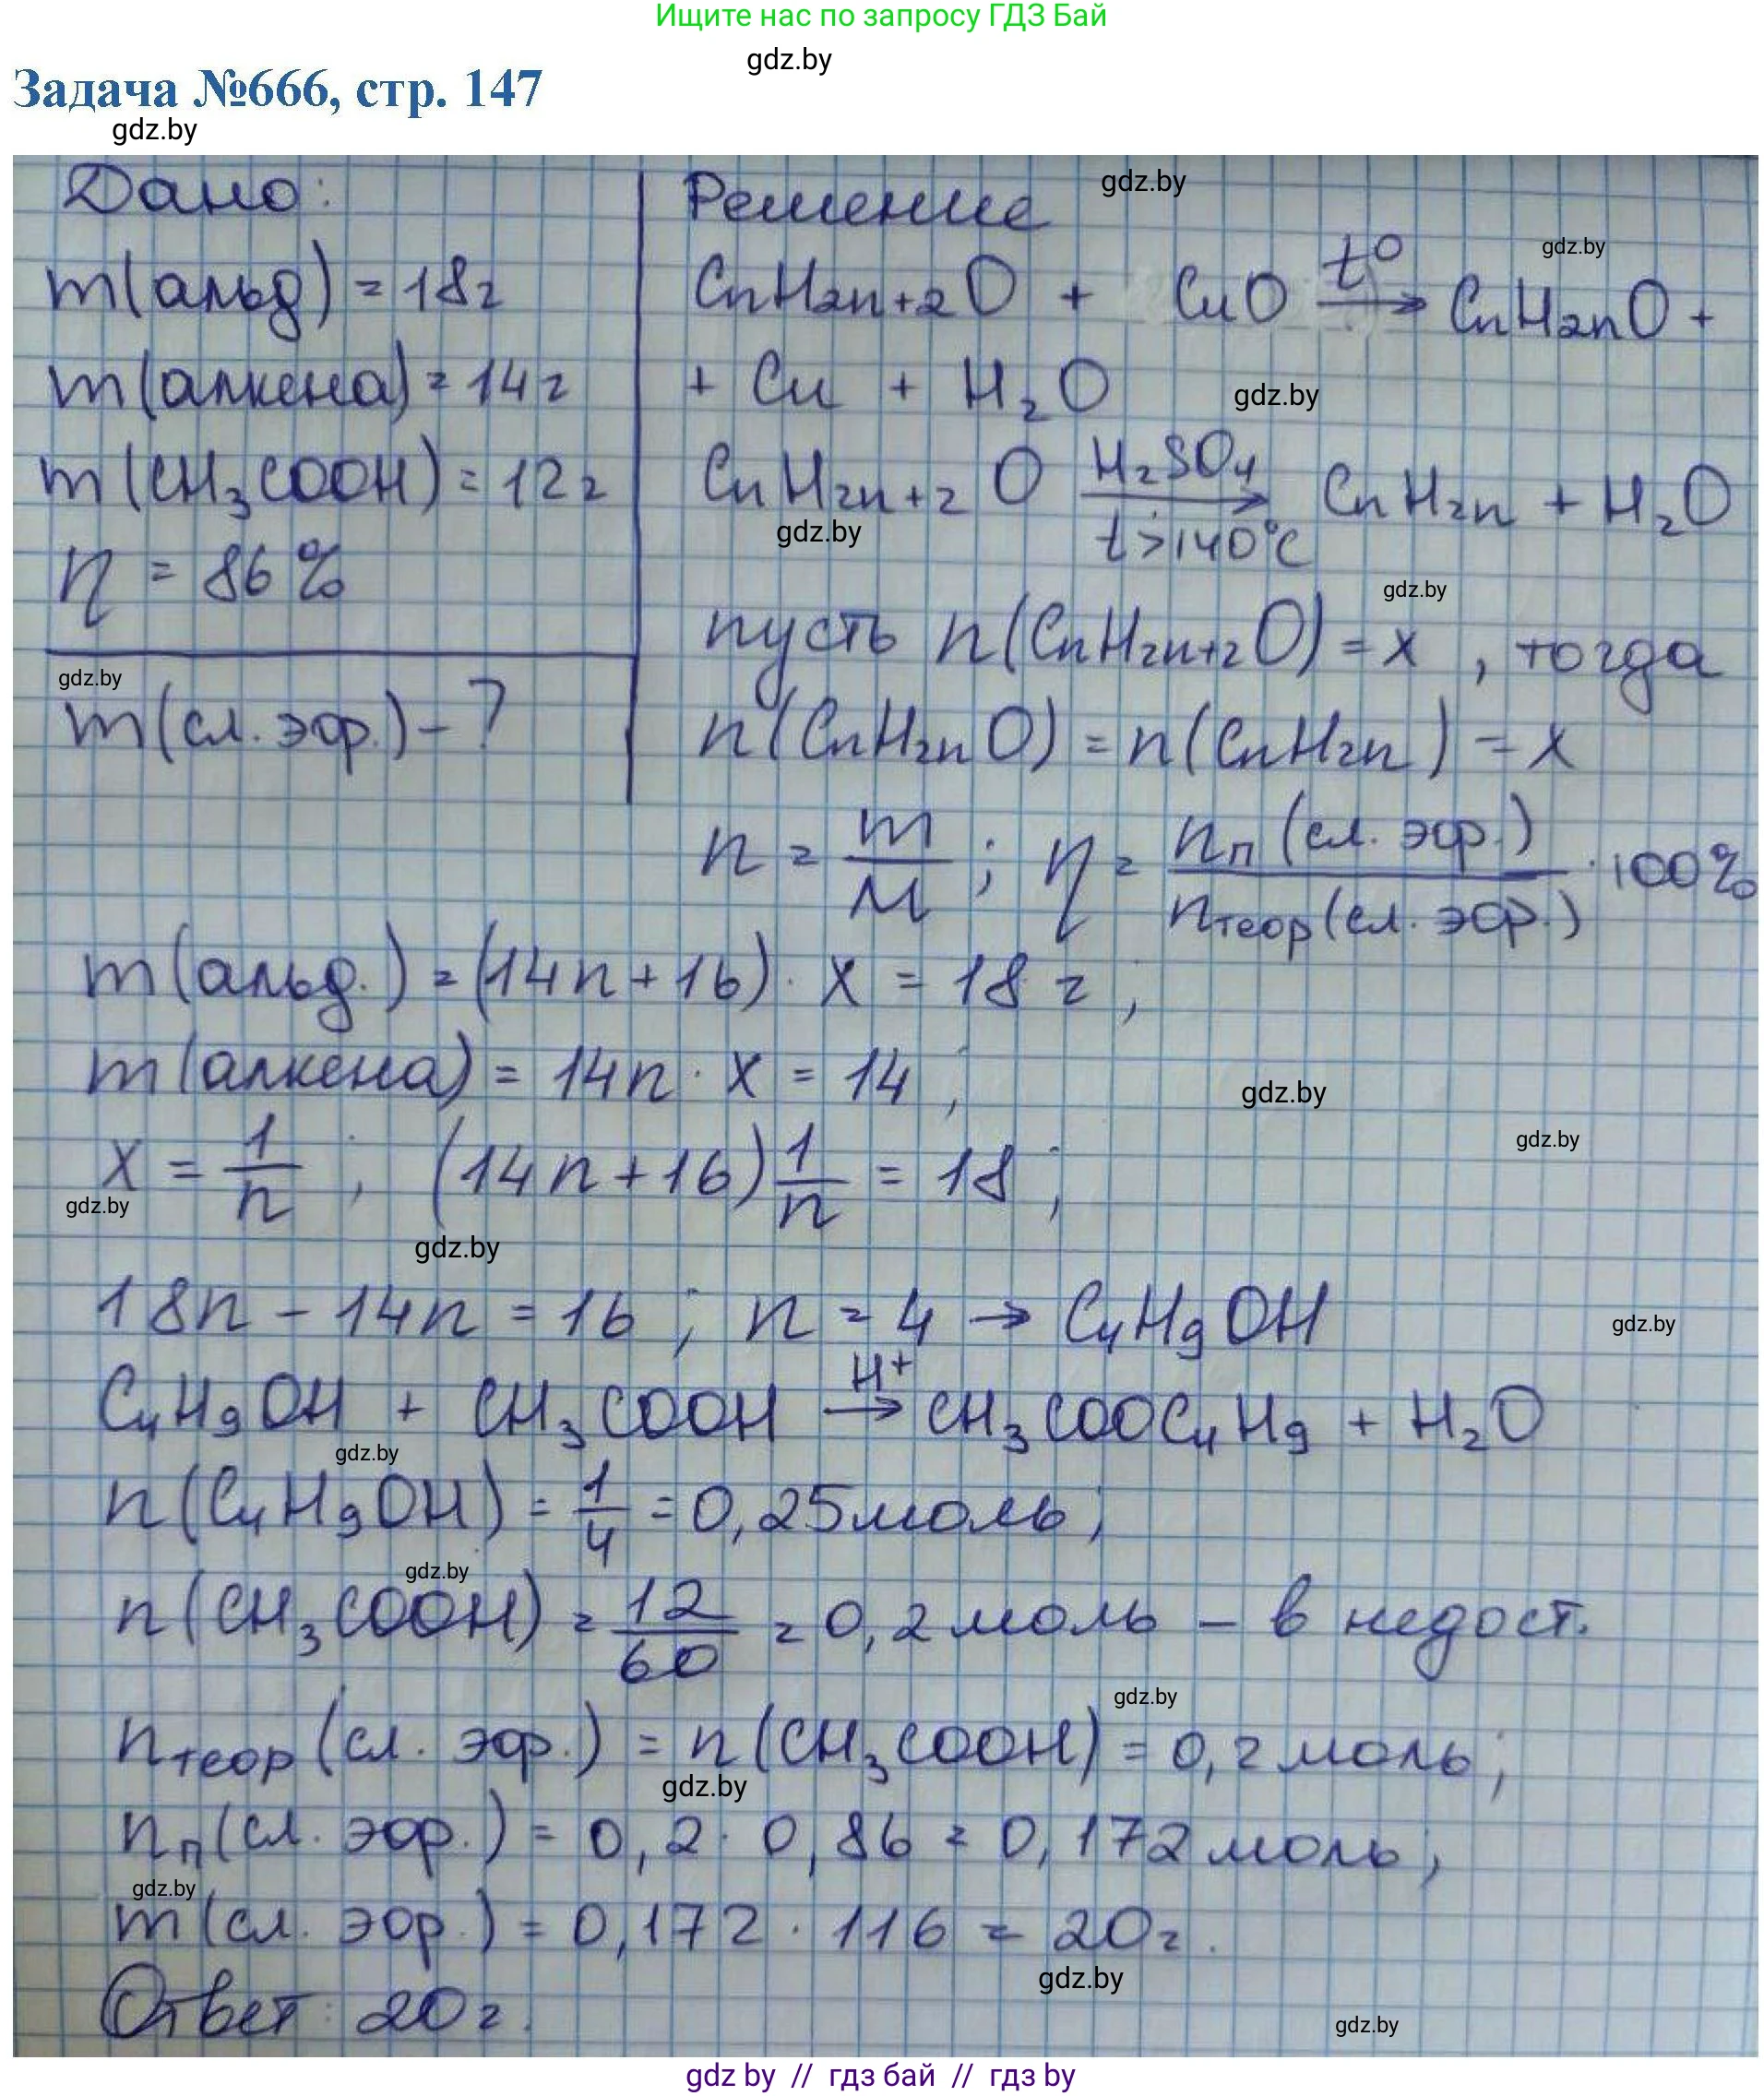 Ищите нас по запросу ГДЗ Бай
gdz.by
Задача №666, стр. 147
gdz.by
Дано:
m(альд) = 18г
m(алкена) = 14г
m(CH₃COOH) = 12г
η = 86%
gdz.by
m(сл. эфр.) - ?
Решение
gdz.by
gdz.by
CnH2n+2O + CuO t° → CnH2nO +
+ Cu + H₂O
gdz.by
CnH2n+2O H₂SO₄ → t>140°C CnH2n + H₂O
gdz.by
gdz.by
пусть n(CnH2n+2O) = x , тогда
n(CnH2nO) = n(CnH2n) = x
n = m/M ; η = nп(сл. эфр.)/nтеор(сл. эфр.) · 100%
m(альд.) = (14n + 16) · x = 18 г ;
m(алкена) = 14n · x = 14 ;
gdz.by
gdz.by
x = 1/n ; (14n + 16) 1/n = 18 ;
gdz.by
gdz.by
18n - 14n = 16 ; n = 4 → C₄H₉OH
gdz.by
C₄H₉OH + CH₃COOH H⁺ → CH₃COOC₄H₉ + H₂O
gdz.by
n(C₄H₉OH) = 1/4 = 0,25моль ;
gdz.by
n(CH₃COOH) = 12/60 = 0,2 моль - в недост.
gdz.by
nтеор(сл. эфр.) = n(CH₃COOH) = 0,2 моль ;
gdz.by
nп(сл. эфр.) = 0,2 · 0,86 = 0,172 моль ;
gdz.by
m(сл. эфр.) = 0,172 · 116 = 20г.
gdz.by
Ответ : 20г.
gdz.by
gdz by // гдз бай // гдз by